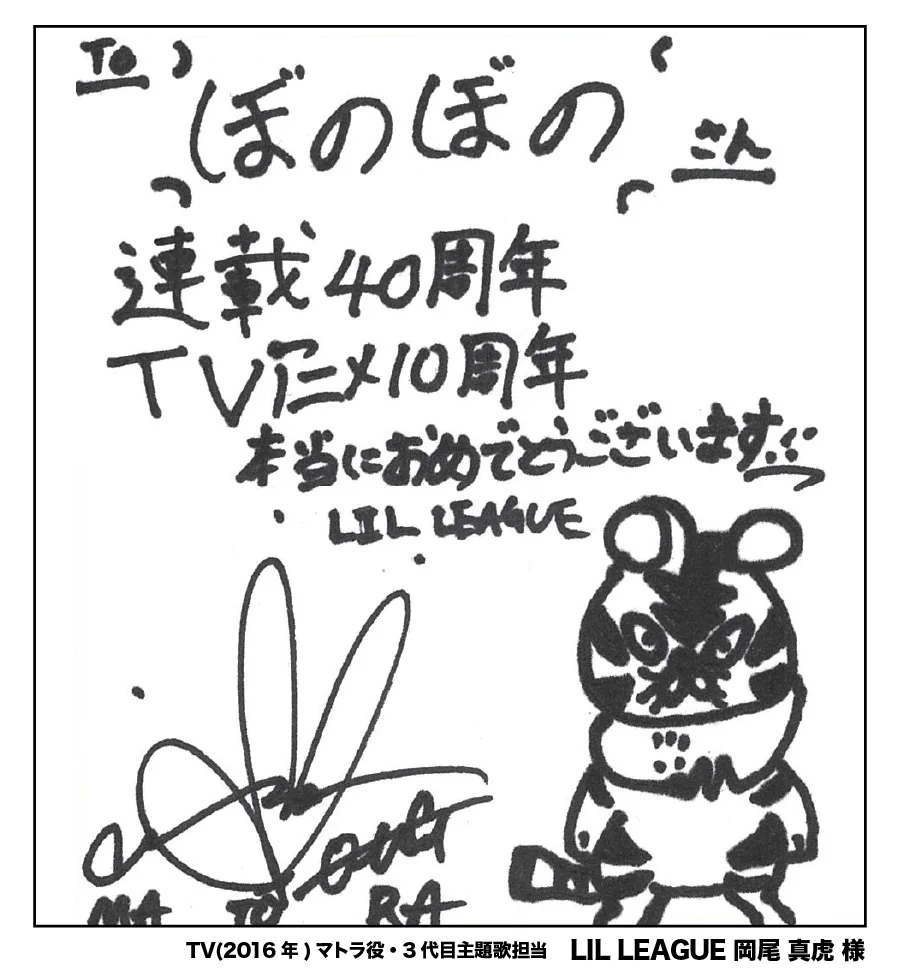 TO
ぼのぼの さん
連載40周年
TVアニメ10周年
本当におめでとうございます!!
LIL LEAGUE
MA TO RA
TV(2016年)マトラ役・3代目主題歌担当 LIL LEAGUE 岡尾 真虎 様